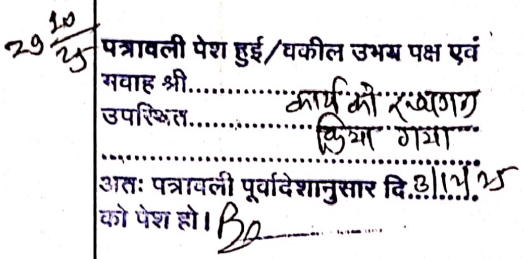 29/10/25
पत्रावली पेश हुई/वकील उभय पक्ष एवं
गवाह श्री.................... कार्य को स्थगन
उपस्थित.................... किया गया
..........................................................
अतः पत्रावली पूर्वादेशानुसार दि. 3/12/25
को पेश हो।